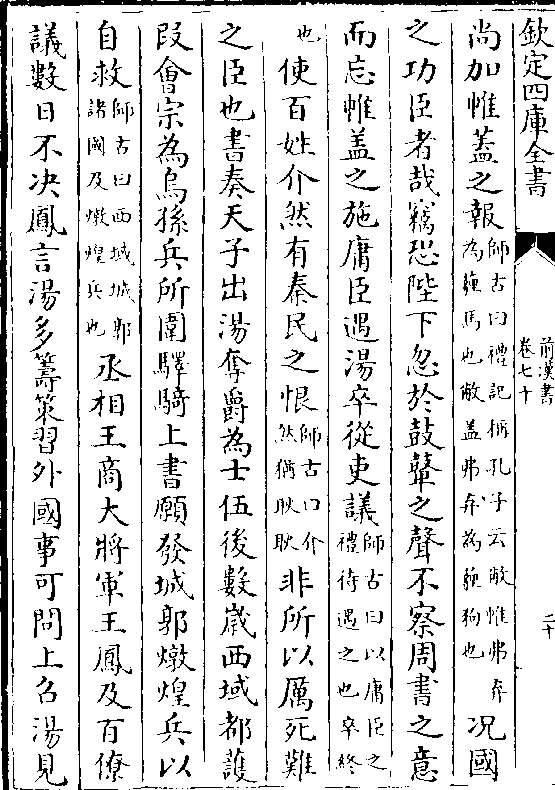 欽定四庫全書
前漢書
卷七十
二十
尚加帷蓋之報師古曰禮記稱孔子云敝帷弗弃為薶馬也敝盖弗弃為薶狗也况國
之功臣者哉竊恐陛下忽於鼓鼙之聲不察周書之意
而忘帷盖之施庸臣遇湯卒從吏議師古曰以庸臣之禮待遇之也卒終
也使百姓介然有秦民之恨師古曰介然猶耿耿非所以厲死難
之臣也書奏天子出湯奪爵為士伍後數歲西域都護
段會宗為烏孫兵所圍驛騎上書願發城郭燉煌兵以
自救師古曰西域城郭諸國及燉煌兵也丞相王商大將軍王鳳及百僚
議數日不决鳳言湯多籌策習外國事可問上召湯見